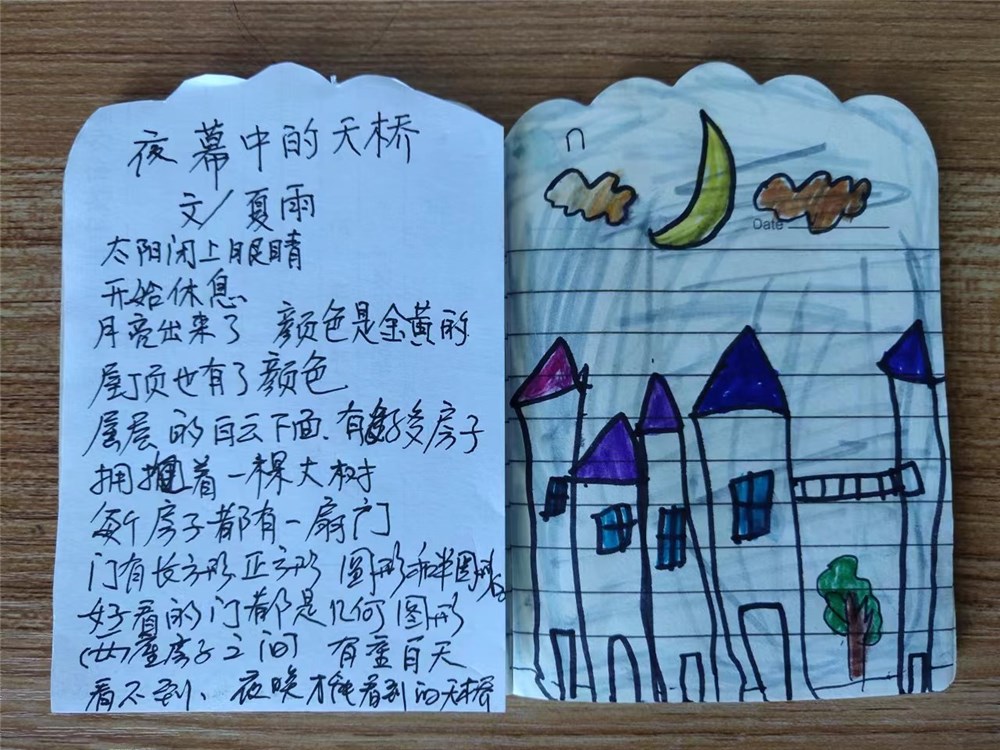 夜幕中的天桥
文/夏雨
太阳闭上眼睛
开始休息
月亮出来了 颜色是金黄的
屋顶也有了颜色
层层的白云下面、有好多房子
拥抱着一棵大树
每个房子都有一扇门
门有长方形 正方形 圆形和半圆形
好看的门都是几何图形
(女)座房子之间 有座白天
看不到、夜晚才能看到的天桥
Date